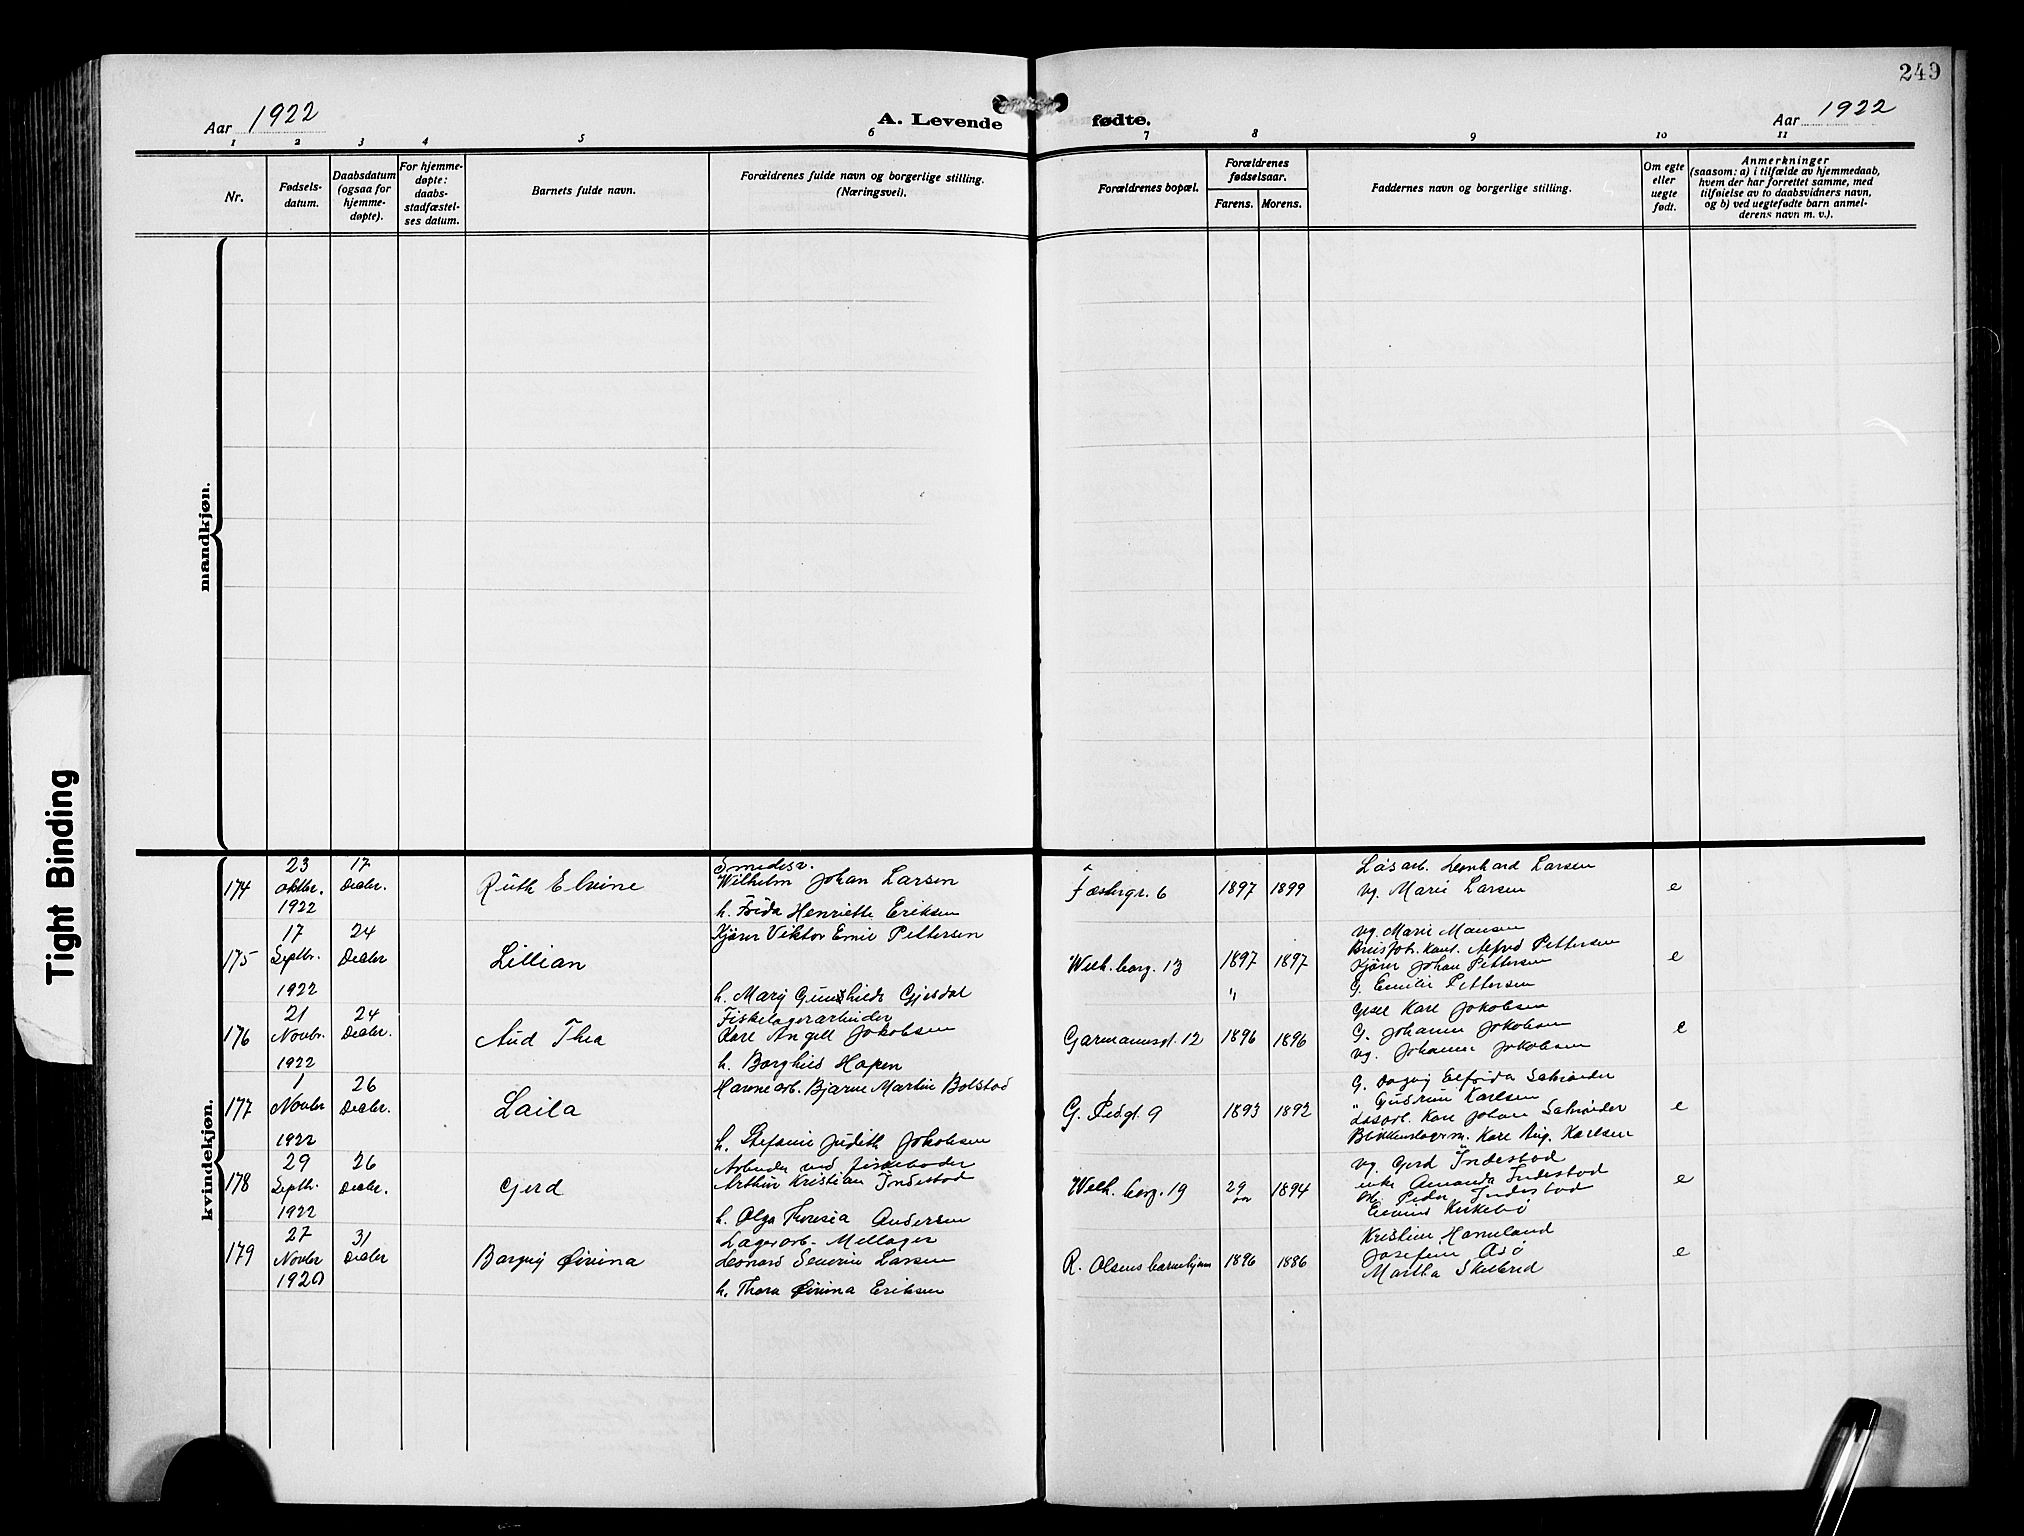 249
Aar 1922
A. Levende fødte.
Aar 1922
1 2 3 4 5 6 7 8 9 10 11
Nr.
Fødsels-
datum.
Daabsdatum
(ogsaa for
hjemme-
døpte).
For hjemme-
døpte:
daabs-
stadfæstel-
ses datum.
Barnets fulde navn.
Forældrenes fulde navn og borgerlige stilling.
(Næringsvei).
Forældrenes bopæl.
Forældrenes
fødselsaar.
Farens. Morens.
Faddernes navn og borgerlige stilling.
Om egte
eller
uegte
født.
Anmerkninger
(saasom: a) i tilfælde av hjemmedaab,
hvem der har forrettet samme, med
tilføielse av to daabsvidners navn,
og b) ved uegtefødte barn anmel-
derens navn m. v.).
mandkjøn.
kvindekjøn.
Tight Binding
174
23
oktbr.
1922
17
Decbr.
Ruth Elvine
Wilhelm Johan Larsen
h. Frida Henriette Eriksen
6
1897 1899
Løsarb. Leonhard Larsen
vg. Marie Larsen
e
175
17
Septbr.
1922
24
Decbr
Lillian
Kjører Viktor Emil Pettersen
h. Mary Gunhilda Gjesdal
Welh. borg. 13
1897 1897
vg. Marie
Alfred Pettersen
Kjører Johan Pettersen
G. Emilie Pettersen
e
176
21
Novbr.
1922
24
Decbr.
Aud Thea
Fiskelagerarbeider
Karl Angell Jakobsen
h. Borghild Hapen
Garmannsgt. 12
1896 1896
Karl Jakobsen
G. Johanne Jakobsen
vg. Johanne Jakobsen
e
177
1
Novbr
1922
26
Decbr.
Laila
Bjarne Martin Bolstad
h. Stefanie Judith Jakobsen
G. 9
1893 1892
G. Dagny Elfrida Schrøder
" Gudrun Karlsen
Løsarb. Karl Johan Schrøder
Karl Aug. Karlsen
e
178
29
Septbr.
1922
26
Decbr.
Gerd
Arbeider ved
Arthur Kristian Indestad
h. Olga Theresia Andersen
Welh. borg. 19
29
aar
1894
vg. Gerd Indestad
enke Amanda Indestad
Peder Indestad
Kirkebø
e
179
27
Novbr
1920
31
Decbr
Borgny Øivina
Lagerarb.
Leonard Severin Larsen
h. Thora Øivina Eriksen
R. Olsens barnehjem
1896 1886
Kristine Hameland
Josefine
Martha
e